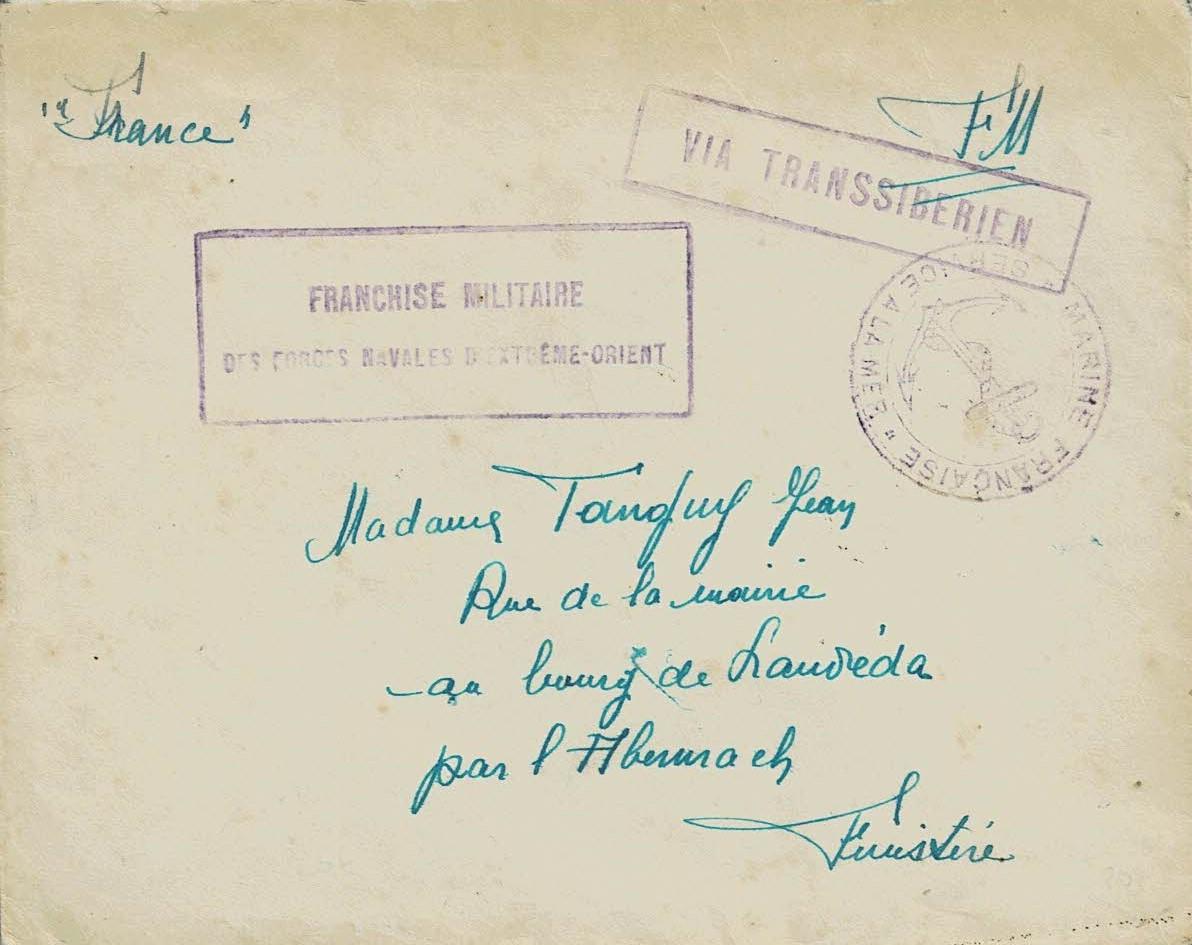 "France"
FM
VIA TRANSSIBERIEN
FRANCHISE MILITAIRE
DES FORCES NAVALES D'EXTRÊME-ORIENT
MARINE FRANÇAISE "
SERVICE A LA MER
Madame Tanguy Jean
Rue de la mairie
au bourg de Landéda
par l'Aberwrach
Finistère